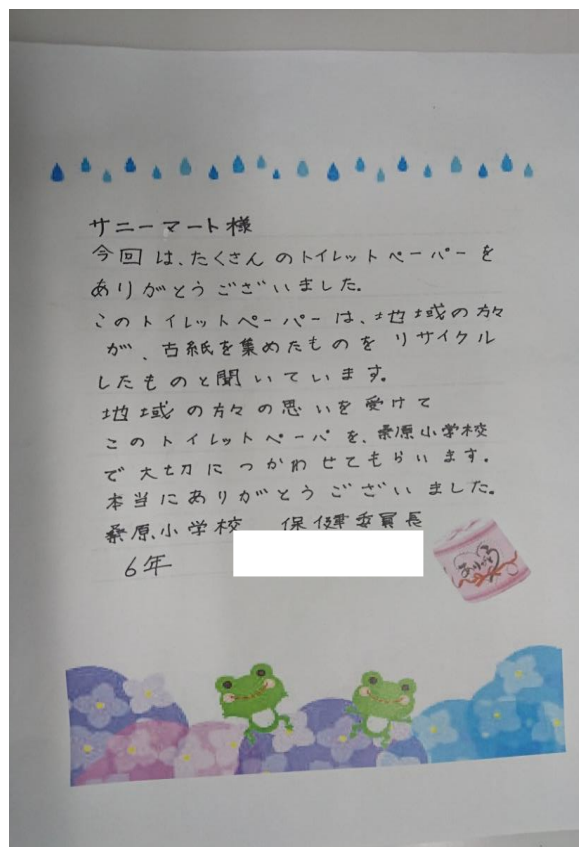 サニーマート様
今回は、たくさんのトイレットペーパーを
ありがとうございました。
このトイレットペーパーは、地域の方々
が、古紙を集めたものをリサイクル
したものと聞いています。
地域の方々の思いを受けて
このトイレットペーパを、桑原小学校
で大切につかわせてもらいます。
本当にありがとうございました。
桑原小学校 保健委員長
6年